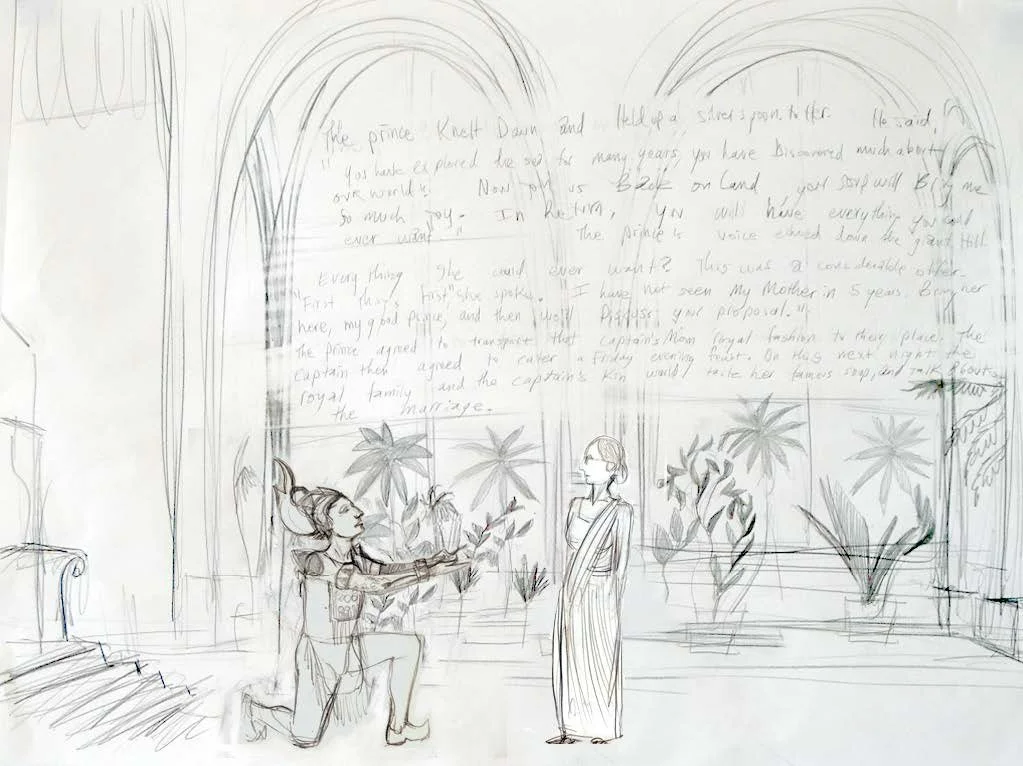 The prince Knelt Down and Held up a silver spoon to Her. He said,
"You have explored the sea for many years, you have Discovered much about
our world. Now join us Back on Land, your soup will Bring me
so much joy. In Return, you will have everything you could
ever want." The prince's voice echoed down the giant Hall.
Everything she could ever want? This was a considerable offer.
"First things first" she spoke. I have not seen My Mother in 5 years. Bring her
here, my good prince, and then we'll Discuss your proposal."
The Prince agreed to transport that captain's Mom royal fashion to their place. The
captain then agreed to cater a Friday evening feast. On this next night the
royal family and the captain's Kin would taste her famous soup, and talk About
the marriage.